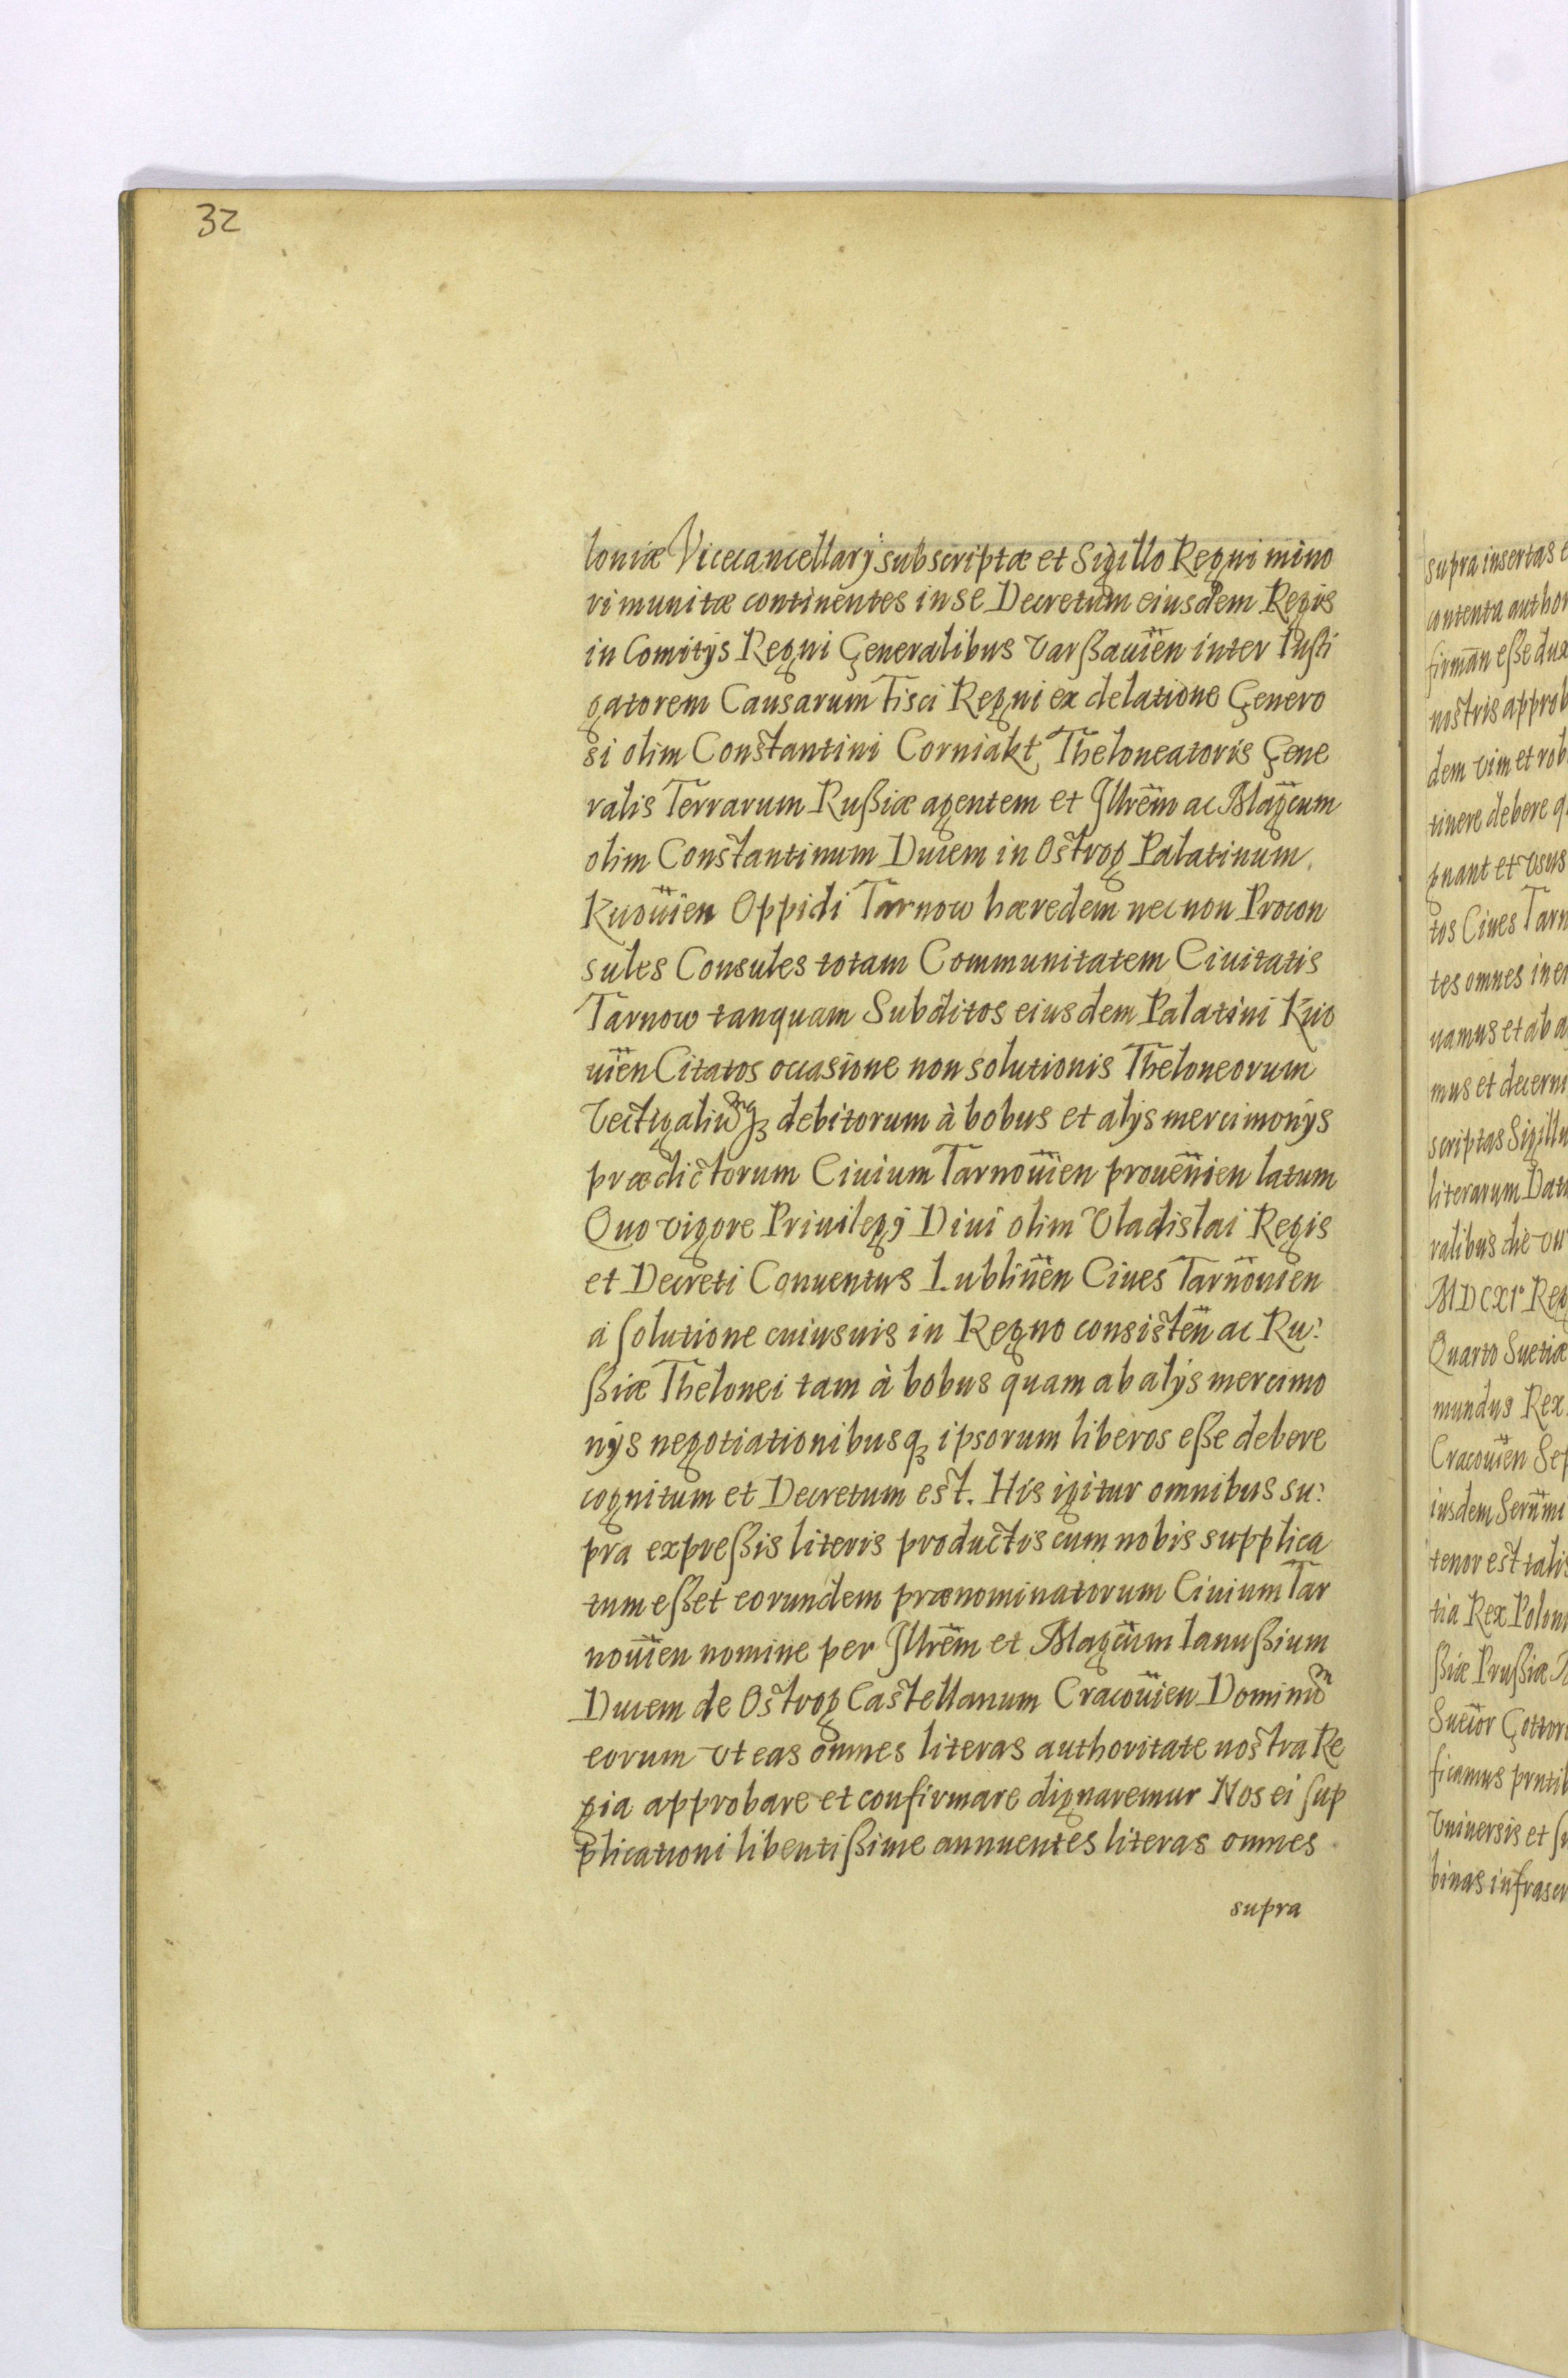 32
loniæ Vicecancellarÿ subscriptæ et Sigillo Regni mino
ri munitæ continentes in se Decretum eiusdem Regis
in Comitÿs Regni Generalibus Varßauien̄ inter Insti
gatorem Causarum Fisci Regni ex delatione Genero
si olim Constantini Corniakt Theloneatoris Gene
ralis Terrarum Rußiæ agentem et Illrēm ac Magcum
olim Constantinum Ducem in Ostrog Palatinum
Kuouien̄ Oppidi Tarnow hæredem nec non Procon
sules Consules totam Communitatem Ciuitatis
Tarnow tanquam Subditos eiusdem Palatini Kiio
uien̄ Citatos occasione non solutionis Theloneorum
Vectigaliumq3 debitorum à bobus et alÿs mercimonÿs
prædictorum Ciuium Tarnouien̄ prouenien̄ latum
Quo vigore Priuilegÿ Diui olim Vladislai Regis
et Decreti Conuentus Lublinen̄ Ciues Tarnouien̄
á solutione cuiusuis in Regno consisten̄ ac Ru:
ßiæ Thelonei tam à bobus quam ab alÿs mercimo
nÿs negotiationibusq3 ipsorum liberos eße debere
cognitum et Decretum est. His igitur omnibus su:
pra expreßis literis productis cum nobis supplica
tum eßet eorundem prænominatorum Ciuium Tar
nouien̄ nomine per Illrēm et Magcum Ianußium
Ducem de Ostrog Castellanum Cracouien̄ Dominum
eorum vt eas omnes literas authoritate nostra Re
gia approbare et confirmare dignaremur Nos ei sup
plicationi libentißime annuentes literas omnes
supra
supra insertas
contenta author
firman̄ eße dux
nostris approb
dem vim et rob
tinere debere q
gnant et vsus
tos Ciues Tarn
tes omnes in e
uamus et ab a
mus et decerni
scriptas Sigillu
literarum Dat
ralibus die
MDCXI° Reg
Quarto Suetiæ
mundus Rex
Cracouien̄ Se
iusdem Sern̄mi
tenor est talis
tia Rex Polon
ßiæ Prußiæ
Suecor̄ Gottor
ficamus prn̄tib
Vniuersis et s
binas infrascr